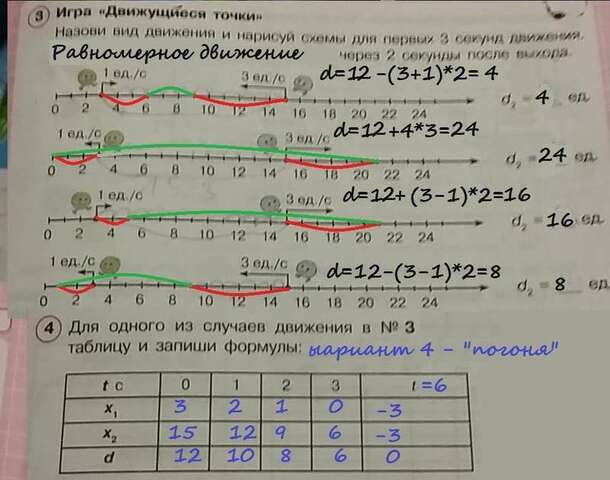 3 Игра «Движущиеся точки»
Назови вид движения и нарисуй схемы для первых 3 секунд движения.
Равномерное движение через 2 секунды после выхода.
1 ед./с 3 ед./с d=12 -(3+1)*2= 4
0 2 4 6 8 10 12 14 16 18 20 22 24 d₂ = 4 ед.
1 ед./с 3 ед./с d=12+4*3=24
0 2 4 6 8 10 12 14 16 18 20 22 24 d₂ = 24 ед.
1 ед./с 3 ед./с d=12+ (3-1)*2=16
0 2 4 6 8 10 12 14 16 18 20 22 24 d₂ = 16 ед.
1 ед./с 3 ед./с d=12-(3-1)*2=8
0 2 4 6 8 10 12 14 16 18 20 22 24 d₂ = 8 ед.
4 Для одного из случаев движения в № 3
таблицу и запиши формулы: ыариант 4 - "погоня"
t с 0 1 2 3 t =6
x₁ 3 2 1 0 -3
x₂ 15 12 9 6 -3
d 12 10 8 6 0